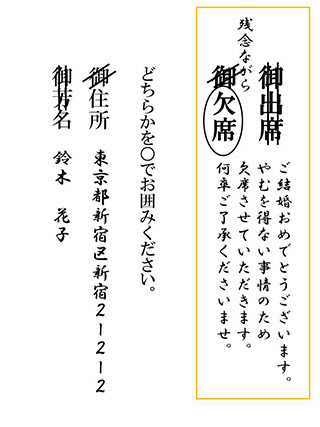 御出席
残念ながら
御欠席
ご結婚おめでとうございます。
やむを得ない事情のため
欠席させていただきます。
何卒ご了承くださいませ。
どちらかを〇でお囲みください。
御住所 東京都新宿区新宿2-2-2
御芳名 鈴木 花子